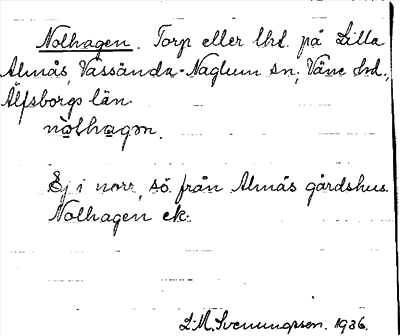 Nolhagen. Torp eller lht. på Lilla
Almås, Vassända-Naglum sn; Väne hd.;
Älfsborgs län.
nòlhagən.
Ej i norr, sö. från Almås gårdshus.
Nolhagen ek.
L.M. Svenungsson. 1936.